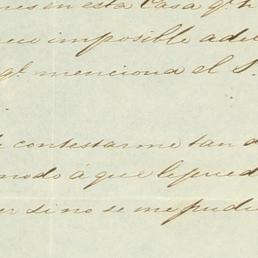 en esta Casa qe
imposible
qe menciona el S.
contestarme tan
modo á que le pued
si no se me pudi